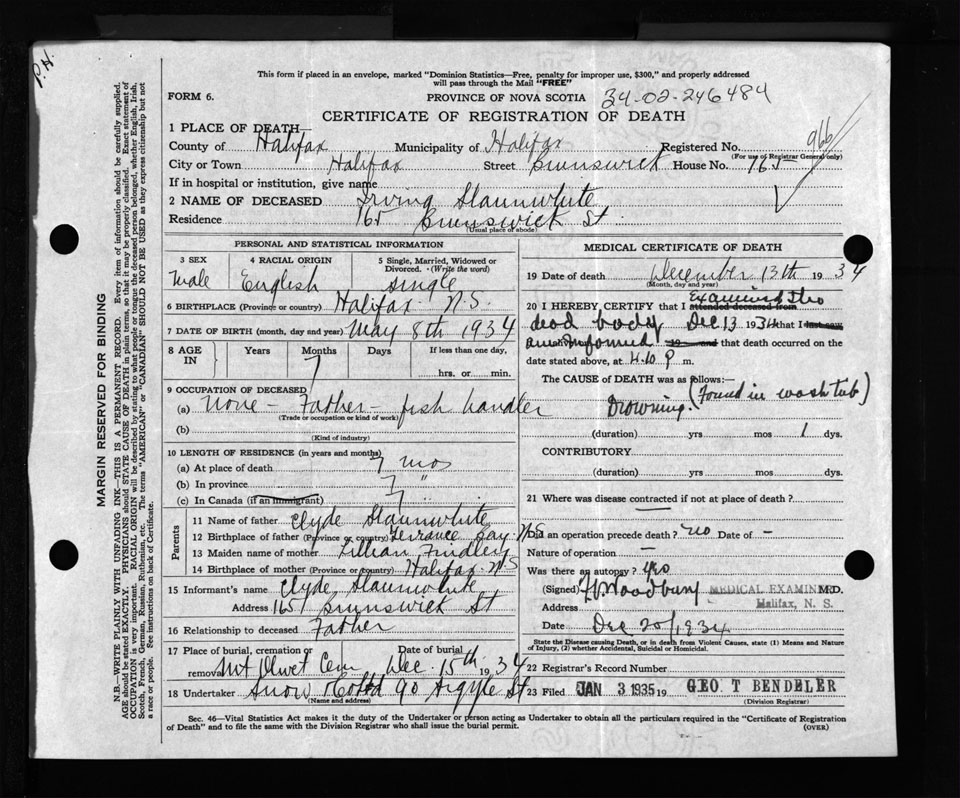 P.H.
This form if placed in an envelope, marked "Dominion Statistics—Free, penalty for improper use, $300," and properly addressed
will pass through the Mail "FREE"
FORM 6.
PROVINCE OF NOVA SCOTIA
34-02-246484
CERTIFICATE OF REGISTRATION OF DEATH
1 PLACE OF DEATH—
966
County of Halifax Municipality of Halifax Registered No.
(For use of Registrar General only)
City or Town Halifax Street Brunswick House No. 165
If in hospital or institution, give name
2 NAME OF DECEASED Irving Slaunwhite
Residence 165 Brunswick St
(Usual place of abode)
PERSONAL AND STATISTICAL INFORMATION
3 SEX
Male
4 RACIAL ORIGIN
English
5 Single, Married, Widowed or Divorced. (Write the word)
single
6 BIRTHPLACE (Province or country) Halifax N.S.
7 DATE OF BIRTH (month, day and year) May 8th 1934
8 AGE IN
Years
Months
7
Days
If less than one day,
hrs. or min.
9 OCCUPATION OF DECEASED
(a) None - Father - fish handler
(Trade or occupation or kind of work)
(b)
(Kind of industry)
10 LENGTH OF RESIDENCE (in years and months)
(a) At place of death 7 mos
(b) In province 7 "
(c) In Canada (if an immigrant) 7
Parents
11 Name of father Clyde Slaunwhite
12 Birthplace of father (Province or country) Terrance Bay N.S
13 Maiden name of mother Lillian Findley
14 Birthplace of mother (Province or country) Halifax N.S
15 Informant's name Clyde Slaunwhite
Address 165 Brunswick St
16 Relationship to deceased Father
17 Place of burial, cremation or removal Mt Olivet Cem
Date of burial Dec. 15th 1934
18 Undertaker Snow & Co Ltd 90 Argyle St
(Name and address)
MEDICAL CERTIFICATE OF DEATH
19 Date of death December 13th 1934
(Month, day and year)
20 I HEREBY CERTIFY that I attended deceased from Examined the
dead body Dec 13 1934 that I last saw
am informed 19 and that death occurred on the
date stated above, at 4.10 P m.
The CAUSE of DEATH was as follows:—
Drowning. (Found in wash tub)
(duration) yrs mos 1 dys.
CONTRIBUTORY
(duration) yrs. mos. dys.
21 Where was disease contracted if not at place of death? —
Did an operation precede death? no Date of -
Nature of operation —
Was there an autopsy? yes
(Signed) Woodbury MEDICAL EXAMINER M.D.
Address Halifax, N. S.
Date Dec 20/1934
State the Disease causing Death, or in death from Violent Causes, state (1) Means and Nature
of Injury, (2) whether Accidental, Suicidal or Homicidal.
22 Registrar's Record Number
23 Filed JAN 3 1935 19 GEO T BENDELER
(Division Registrar)
Sec. 46—Vital Statistics Act makes it the duty of the Undertaker or person acting as Undertaker to obtain all the particulars required in the "Certificate of Registration
of Death" and to file the same with the Division Registrar who shall issue the burial permit.
(OVER)
MARGIN RESERVED FOR BINDING
N.B.—WRITE PLAINLY WITH UNFADING INK—THIS IS A PERMANENT RECORD. Every item of information should be carefully supplied.
AGE should be stated EXACTLY. PHYSICIANS should STATE CAUSE OF DEATH in plain terms, so that it may be properly classified. Exact statement of
OCCUPATION is very important. RACIAL ORIGIN will be described by stating to what people or tongue the deceased person belonged, whether English, Irish,
Scotch, French, German, Russian, Ruthenian, etc. The terms "AMERICAN" or "CANADIAN" SHOULD NOT BE USED as they express citizenship but not
a race or people. See instructions on back of Certificate.